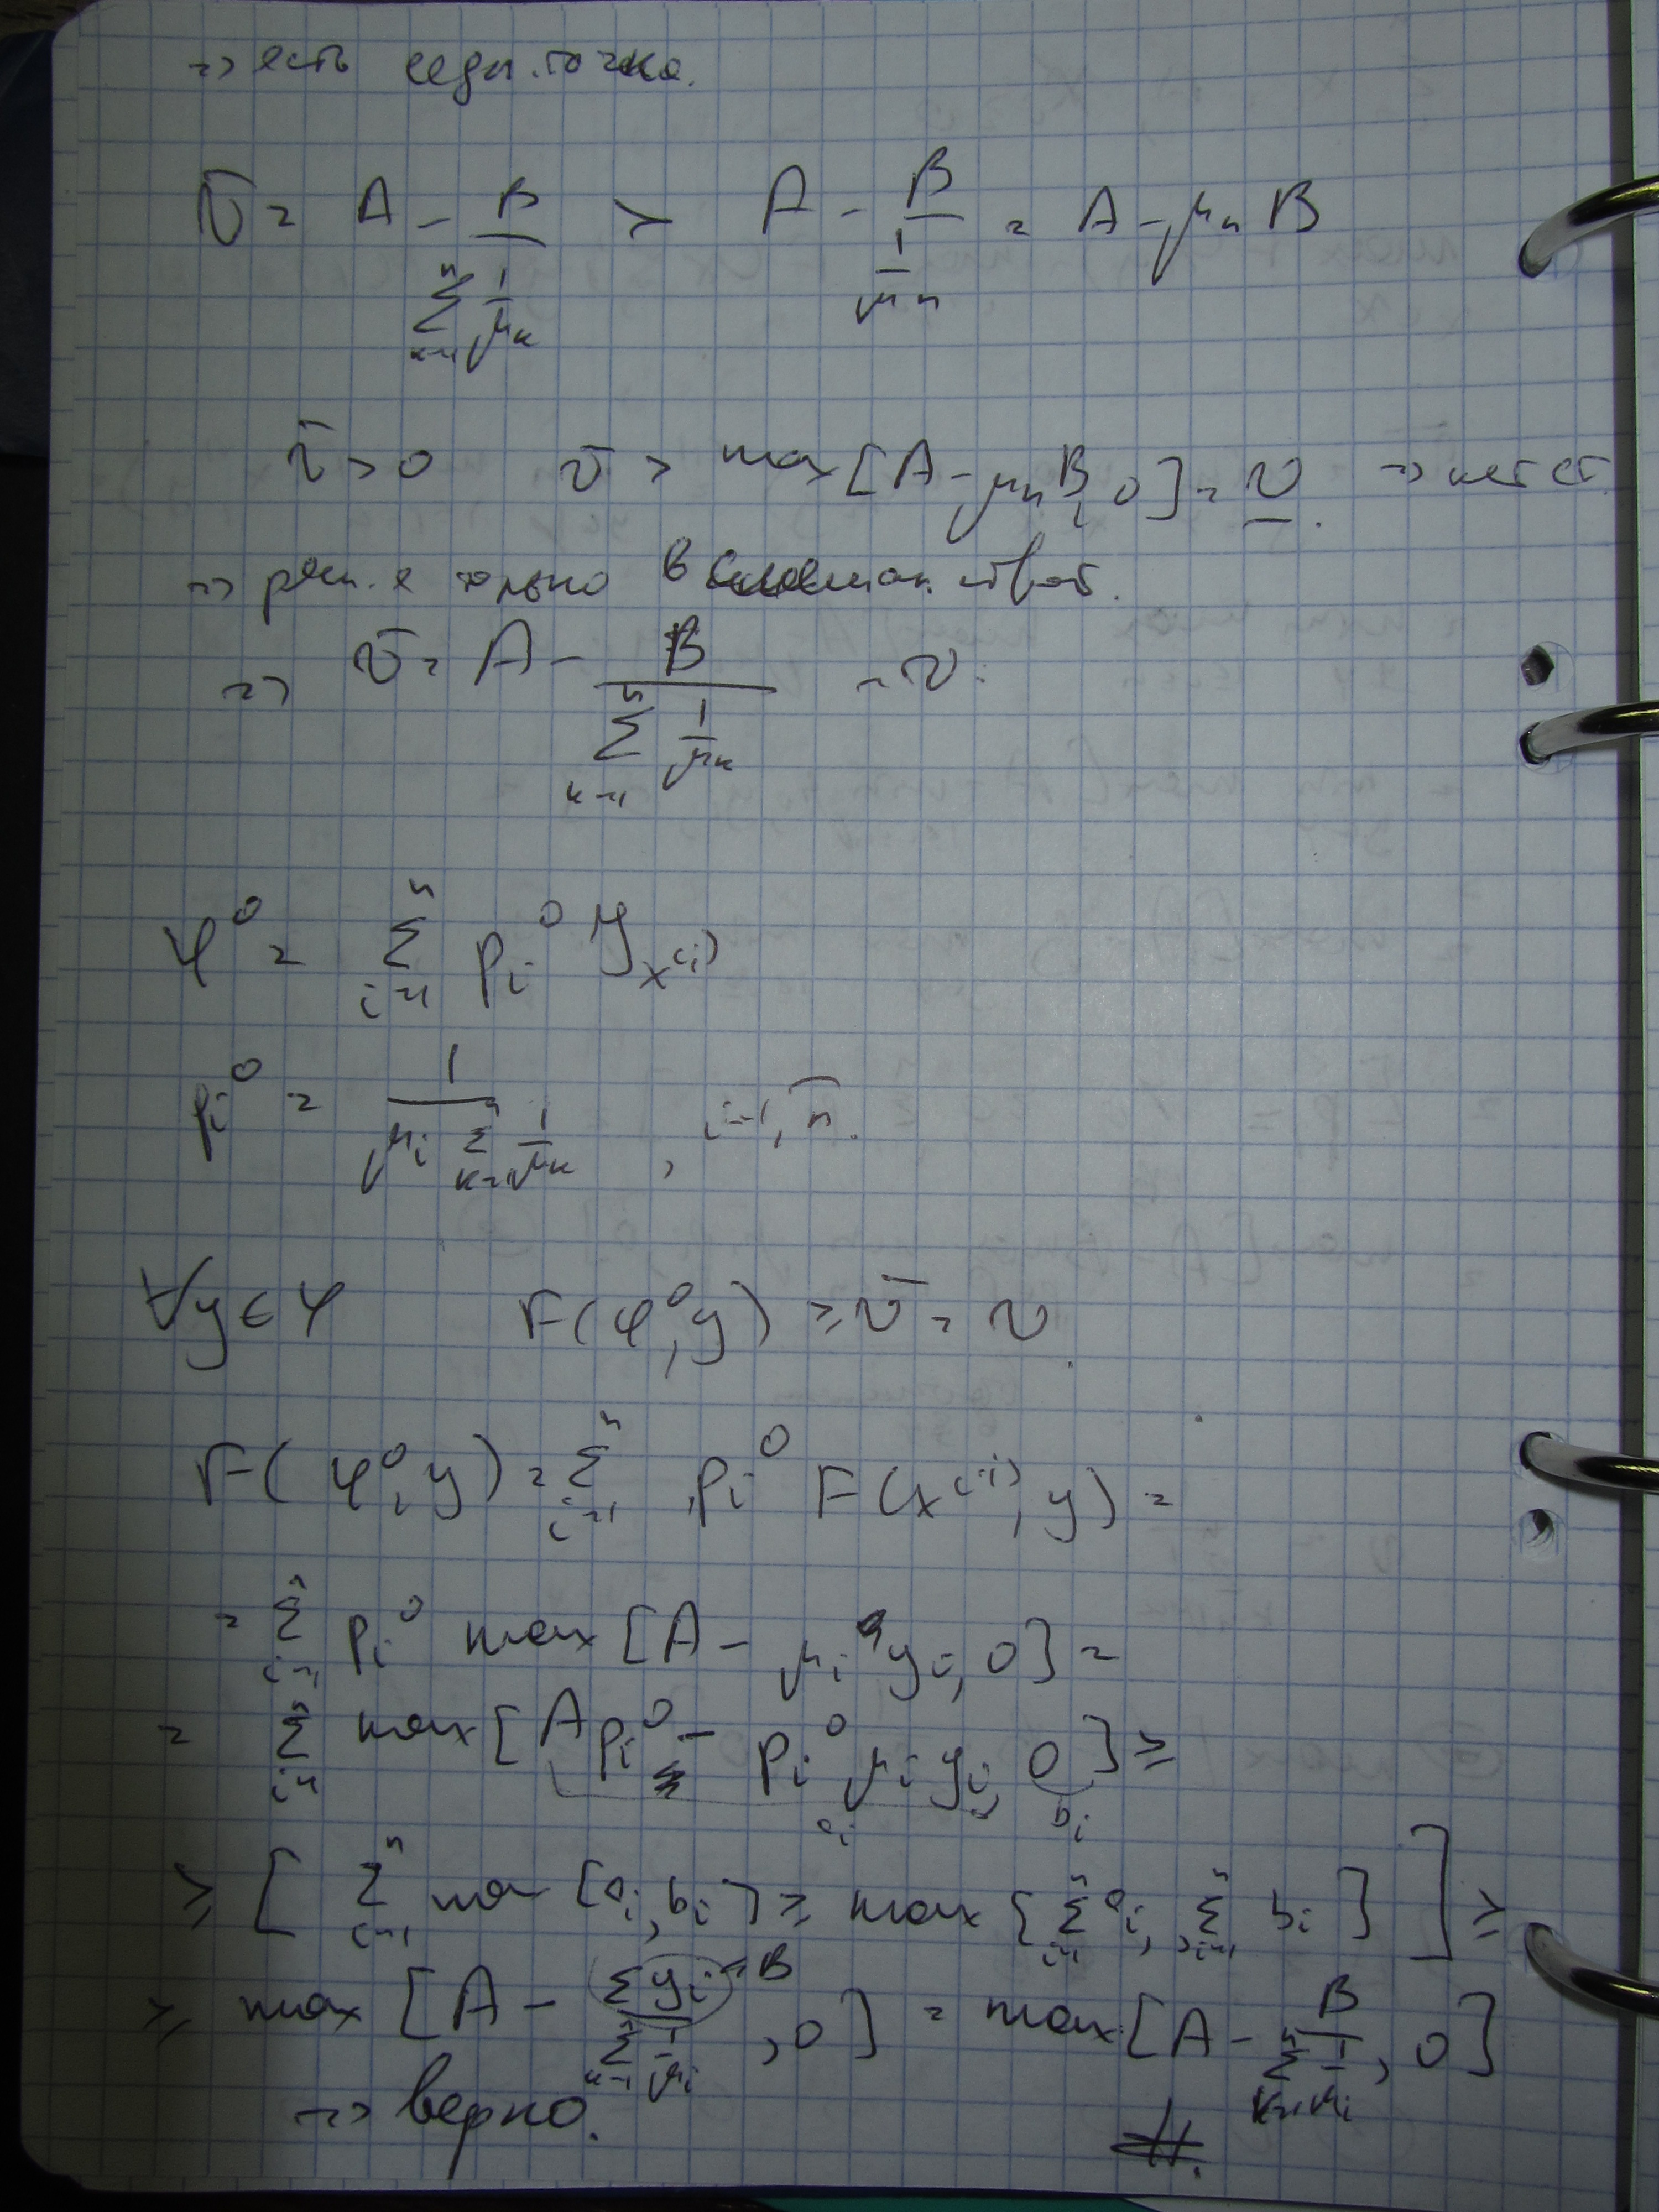 => есть седл. точка.
v̄ = A - B / ∑_{k=1}^{n} 1/μ_k > A - B / (1/μ_n) = A - μ_n B
v̄ > 0 v̄ > max [A - μ_n B, 0] = v̲. => нет ст.
=> реш. е только в смешан. страт.
=> v̄ = A - B / ∑_{k=1}^{n} 1/μ_k = v.
φ⁰ = ∑_{i=1}^{n} p_i⁰ y_{x^{(i)}}
p_i⁰ = 1 / (μ_i ∑_{k=1}^{n} 1/μ_k), i=1,n.
∀y ∈ Y F(φ⁰, y) ≥ v̄ = v.
F(φ⁰, y) = ∑_{i=1}^{n} p_i⁰ F(x^{(i)}, y) =
= ∑_{i=1}^{n} p_i⁰ max [A - μ_i y_i, 0] =
= ∑_{i=1}^{n} max [A p_i⁰ - p_i⁰ μ_i y_i, 0] ≥
a_i b_i
≥ [ ∑_{i=1}^{n} max [a_i, b_i] ≥ max { ∑_{i=1}^{n} a_i, ∑_{i=1}^{n} b_i } ] ≥
≥ max [A - ∑ y_i = B / ∑_{k=1}^{n} 1/μ_i, 0] = max [A - B / ∑_{k=1}^{n} 1/μ_i, 0]
=> верно. #.